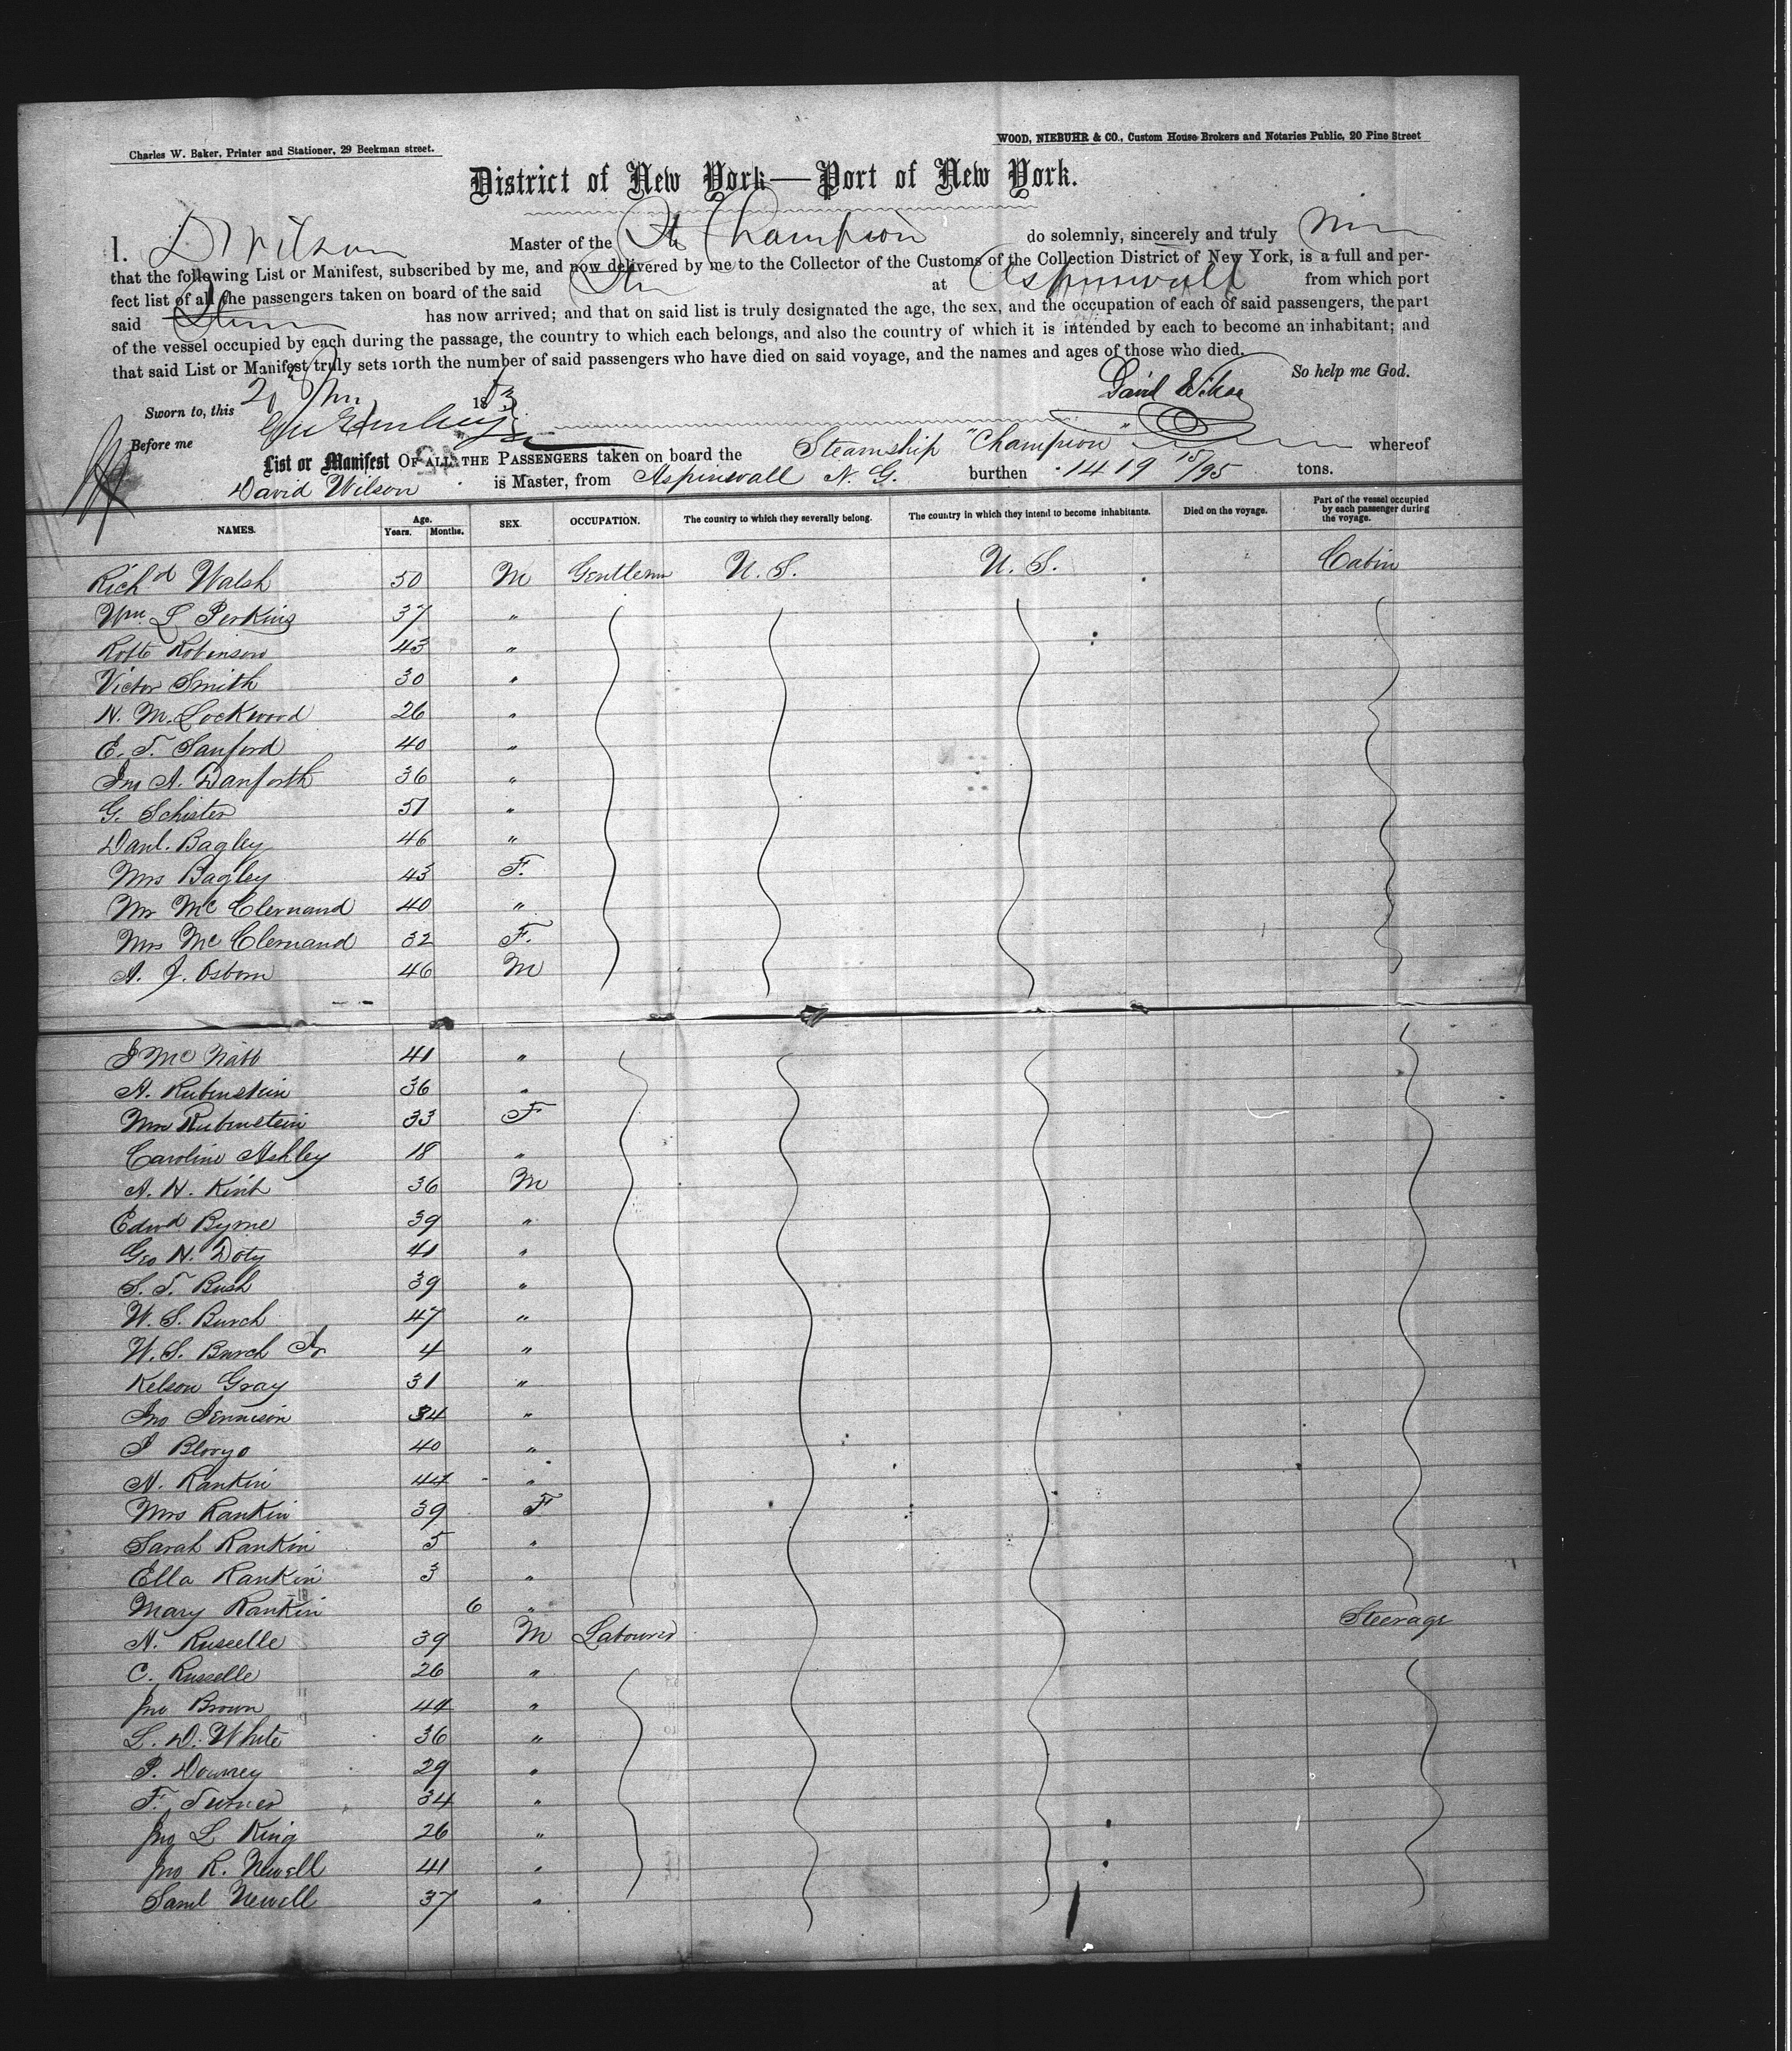 Charles W. Baker, Printer and Stationer, 29 Beekman street.
WOOD, NIEBUHR & CO., Custom House Brokers and Notaries Public, 20 Pine Street
District of New York—Port of New York.
I. D Wilson Master of the Str Champion do solemnly, sincerely and truly
that the following List or Manifest, subscribed by me, and now delivered by me to the Collector of the Customs of the Collection District of New York, is a full and per-
fect list of all the passengers taken on board of the said Str at Aspinwall from which port
said has now arrived; and that on said list is truly designated the age, the sex, and the occupation of each of said passengers, the part
of the vessel occupied by each during the passage, the country to which each belongs, and also the country of which it is intended by each to become an inhabitant; and
that said List or Manifest truly sets forth the number of said passengers who have died on said voyage, and the names and ages of those who died.
So help me God.
Sworn to, this 18
David Wilson
Before me
List or Manifest OF ALL THE PASSENGERS taken on board the Steamship "Champion" whereof
David Wilson is Master, from Aspinwall N. G. burthen 1419 15/95 tons.
NAMES. Age. Years. Months. SEX. OCCUPATION. The country to which they severally belong. The country in which they intend to become inhabitants. Died on the voyage. Part of the vessel occupied by each passenger during the voyage.
Richd Walsh 50 M Gentlemn U. S. U. S. Cabin
Wm. L Perkins 37 "
Robt Robinson 43 "
Victor Smith 30 "
N. M. Lockwood 26 "
E. T. Sanford 40 "
Jno A. Danforth 36 "
G. Schister 51 "
Danl. Bagley 46 "
Mrs Bagley 43 F.
Mr Mc Clernand 40 "
Mrs Mc Clernand 32 F.
A. J. Osborn 46 M
J Mc Nabb 41 "
A. Rubenstein 36 "
Mrs Rubenstein 33 F
Caroline Ashley 18 "
A. H. 36 M
Edwd Byrne 39 "
Geo N. Doty 41 "
S. T. Bush 39 "
W. S. Burch 47 "
W. S. Burch Jr 4 "
Kelson Gray 31 "
Jno Jennison 34 "
J 40 "
N. Rankin 44 "
Mrs Rankin 39 F
Sarah Rankin 5 "
Ella Rankin 3 "
Mary Rankin 6 "
N. Russelle 39 M Labourer Steerage
C. Russelle 26 "
Jno Brown 44 "
L. D. White 36 "
P. Downey 29 "
F. Turner 34 "
Jno L King 26 "
Jno R. Newell 41 "
Saml Newell 37 "